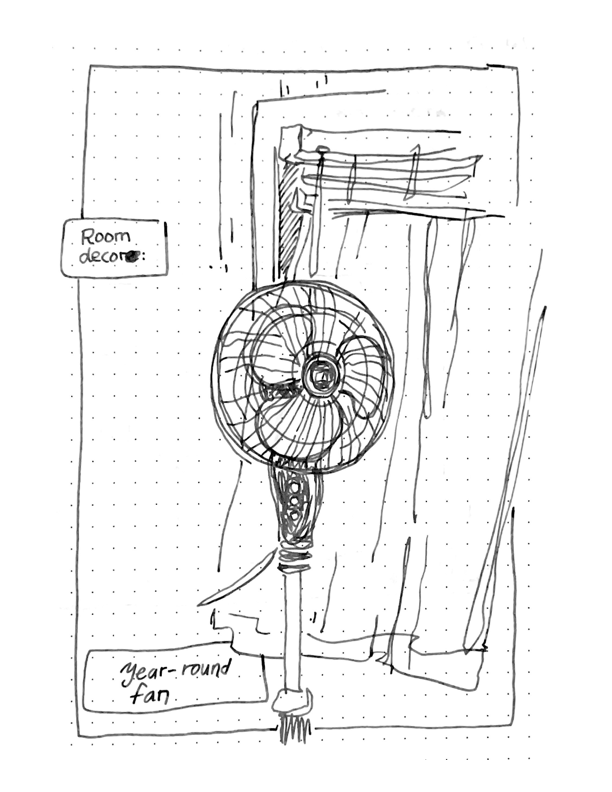 Room
decor:
Year-round
fan